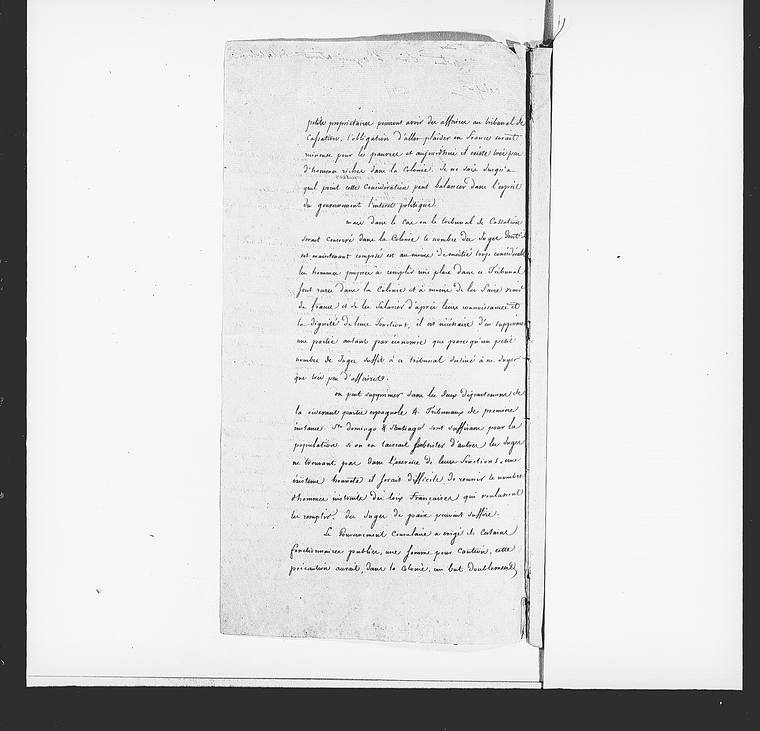 petits proprietaires peuvent avoir des affaires au tribunal de
Cassation, l'obligation d'aller plaider en France serait
ruineuse pour les pauvres et aujourd'hui il existe très peu
d'hommes riches dans la Colonie. Je ne sais jusqu'a
quel point cette Consideration peut balancer dans l'esprit
du gouvernement l'interet politique.
mais dans le Cas où le tribunal de Cassation
serait conservé dans la Colonie le nombre des Juges dont il
est maintenant composé est au moins de moitié trop considérable
les hommes propres à remplir une place dans ce Tribunal
sont rares dans la Colonie et à moins de les faire venir
de france et de les Salarier d'après leurs connaissances et
la dignité de leurs fonctions, il est nécéssaire d'en supprimer
une partie autant par économie que parce qu'un petit
nombre de Juges suffit à ce tribunal destiné à ne Juger
que très peu d'affaires.
on peut supprimer dans les deux départemens de
la ci devant partie espagnole 4 Tribunaux de premiere
instance. Sto domingo & Santiago sont suffisans pour la
population. si on en laissait subsister d'autres les Juges
ne trouvant pas dans l'exercice de leurs fonctions, une
existence honnête il serait difficile de réunir le nombre
d'hommes instruits des loix Françaises qui voulussent
les remplir. des Juges de paix peuvent suffire.
Le Gouvernement Consulaire a exigé de Certains
fonctionnaires publics, une somme pour caution, cette
précaution aurait, dans la Colonie, un but doublement